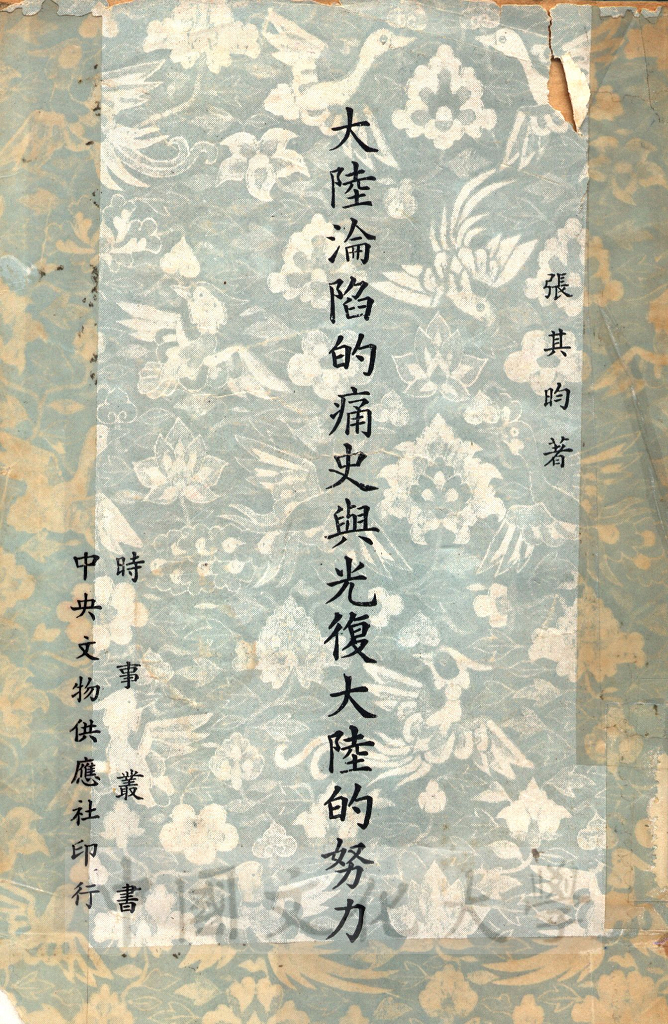 張其昀著
大陸淪陷的痛史與光復大陸的努力
時事叢書
中央文物供應社印行
中國文化大學